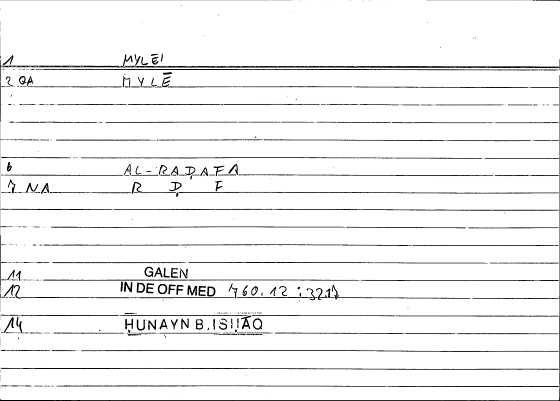 1 MYLĒ'
2 QA MYLĒ
6 AL-RADAFA
7 NA R Ḍ F
11 GALEN
12 IN DE OFF MED 760.12 : 3217
14 ḤUNAYN B. ISḤĀQ